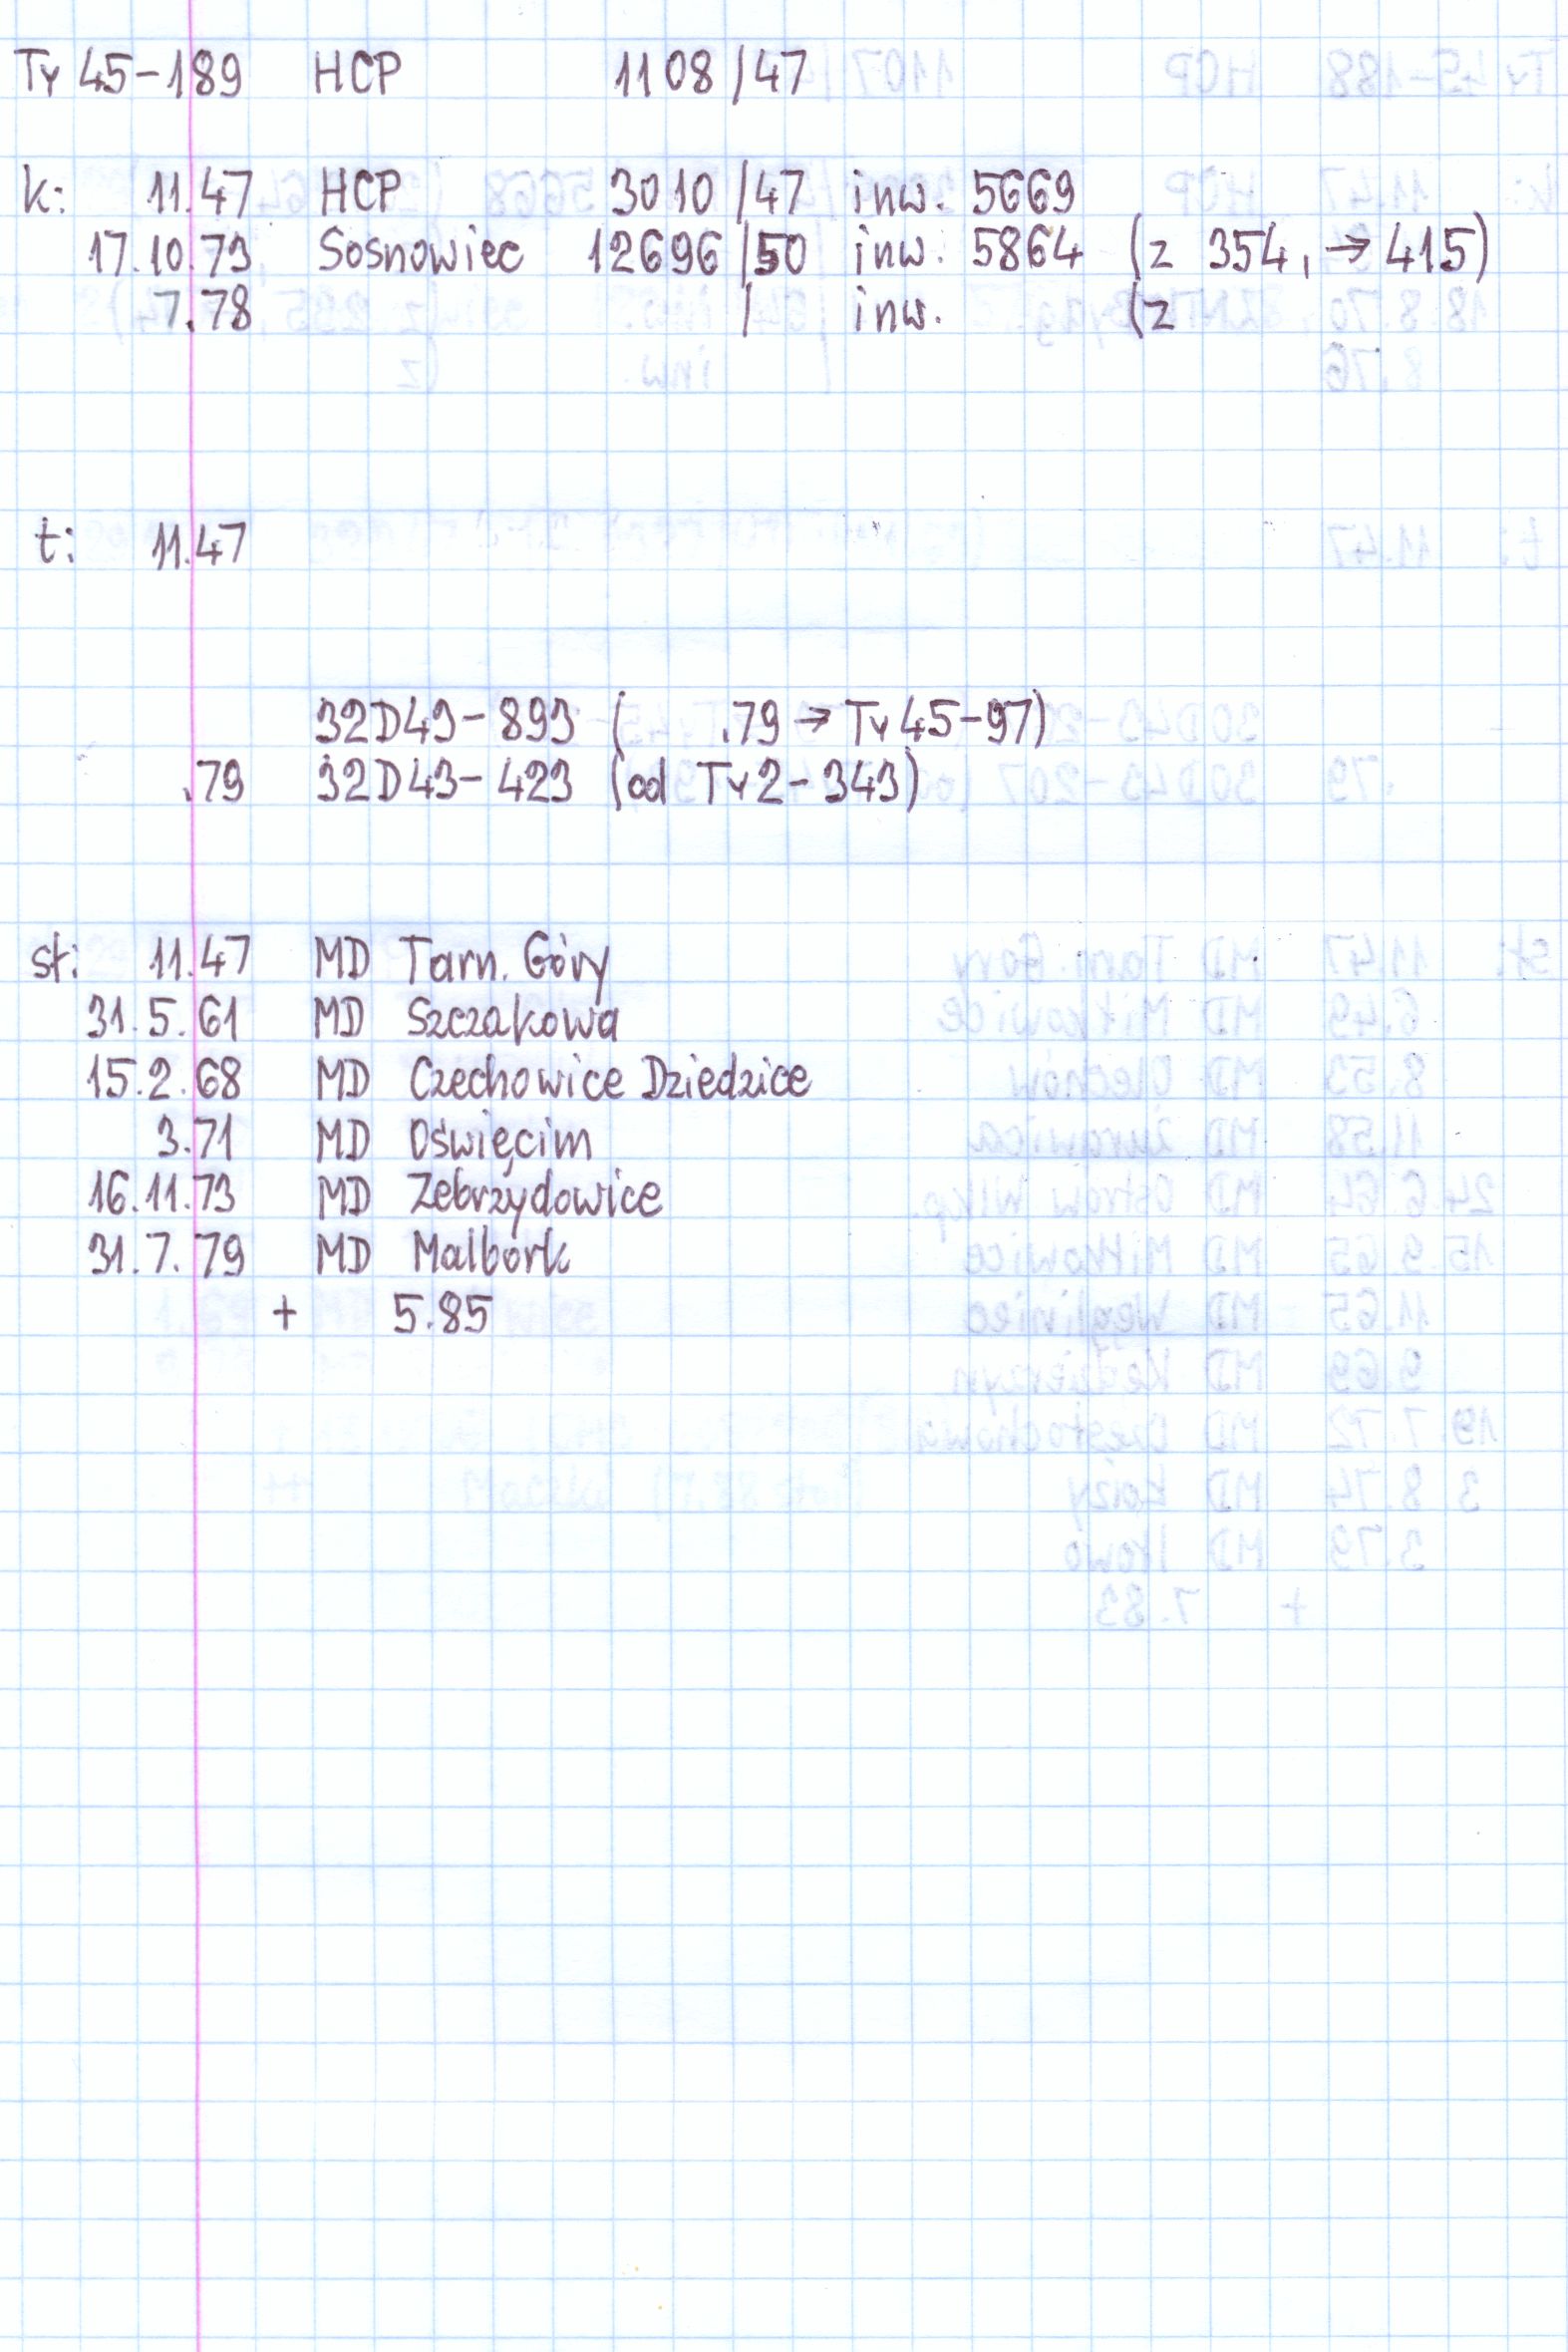 Ty 45-189 HCP 1108/47
k: 11.47 HCP 3010/47 inw. 5669
17.10.73 Sosnowiec 12696/50 inw. 5864 (z 354, → 415)
7.78 / inw. (z
t: 11.47
32D43-893 ( .79 → Ty45-97)
.79 32D43-423 (od Ty2-343)
st: 11.47 MD Tarn. Góry
31.5.61 MD Szczakowa
15.2.68 MD Czechowice Dziedzice
3.71 MD Oświęcim
16.11.73 MD Zebrzydowice
31.7.79 MD Malbork
+ 5.85